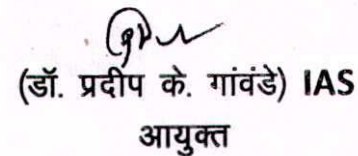 (डॉ. प्रदीप के. गांवंडे) IAS
आयुक्त